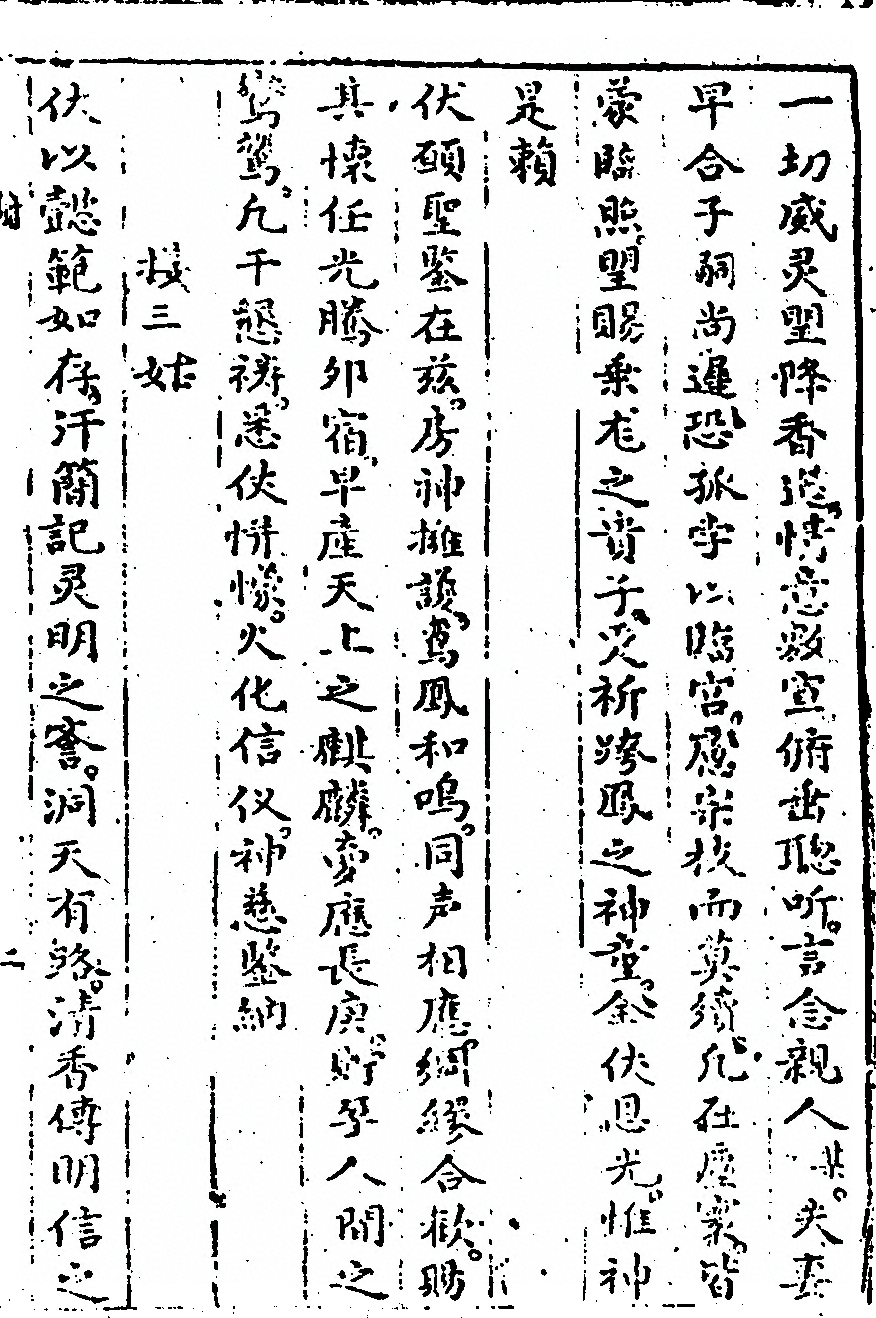 一切威灵盟降香筵情意敷宣俯垂聰听言念親人某夫妻
早合子嗣尚遲恐孤孛以臨宮慮宗枝而莫續凢在塵寰皆
蒙臨照盟賜乗庬之貴子灵祈跨鳳之神童全伏恩光惟神
是賴
伏願聖鑒在兹房神擁護鸞鳳和鳴同声相應綢繆合歡賜
其懷任光騰夘宿早產天上之麒麟夢應長庚貯孕人間之
鸑鷟凢干懇禱悉伏帡幪火化信仪神慈鑒納
接三姑
伏以懿範如存汗簡記灵明之耆洞天有路清香傳明信之
二